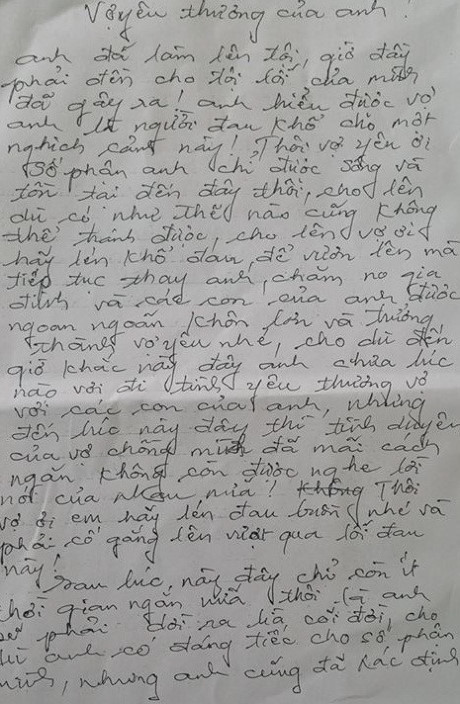 Vợ yêu thương của anh!
anh đã làm lên tội, giờ đây
phải đền cho tội lỗi của mình
đã gây ra! anh hiểu được vợ
anh là người đau khổ cho một
nghịch cảnh này! Thôi vợ yêu ơi
Số phận anh chỉ được sống và
tồn tại đến đây thôi, cho lên
dù có như thế nào cũng không
thể tránh được, cho lên vợ ơi
hãy lén khổ đau, để vươn lên mà
tiếp tục thay anh, chăm no gia
đình và các con của anh được
ngoan ngoãn khôn lớn và trưởng
thành vợ yêu nhé, cho dù đến
giờ khắc này đây anh chưa lúc
nào vơi đi tình yêu thương vợ
với các con của anh, nhưng
đến lúc này đây thì tình duyên
của vợ chồng mình đã mãi cách
ngăn, không còn được nghe lời
nói của nhau nữa! Thôi
vợ ơi em hãy lén đau buồn nhé và
phải cố gắng lên vượt qua lỗi đau
này!
Sau lúc, này đây chỉ còn ít
thời gian ngắn nữa thôi là anh
sẽ phải dời ra là cõi đời, cho
dù anh có đáng tiếc cho số phận
mình, nhưng anh cũng đã sác định